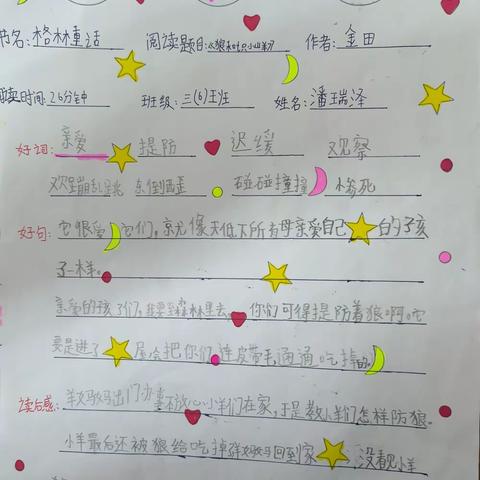 书名:格林童话 阅读题目:《狼和七只小山羊》 作者:金田
阅读时间:26分钟 班级:三(6)班 姓名:潘瑞泽
好词: 亲爱 提防 迟缓 观察
欢蹦乱跳 东倒西歪 碰碰撞撞 惨死
好句: 它很爱它们,就像天底下所有母亲爱自己的孩
子一样。
亲爱的孩子们,我要到森林里去,你们可得提防着狼啊。它
要是进了屋会把你们连皮带毛通通吃掉的。
读后感: 羊妈妈出门办事不放心小羊们在家,于是教小羊们怎样防狼。
小羊最后还被狼给吃掉羊妈妈回到家 没看见小羊